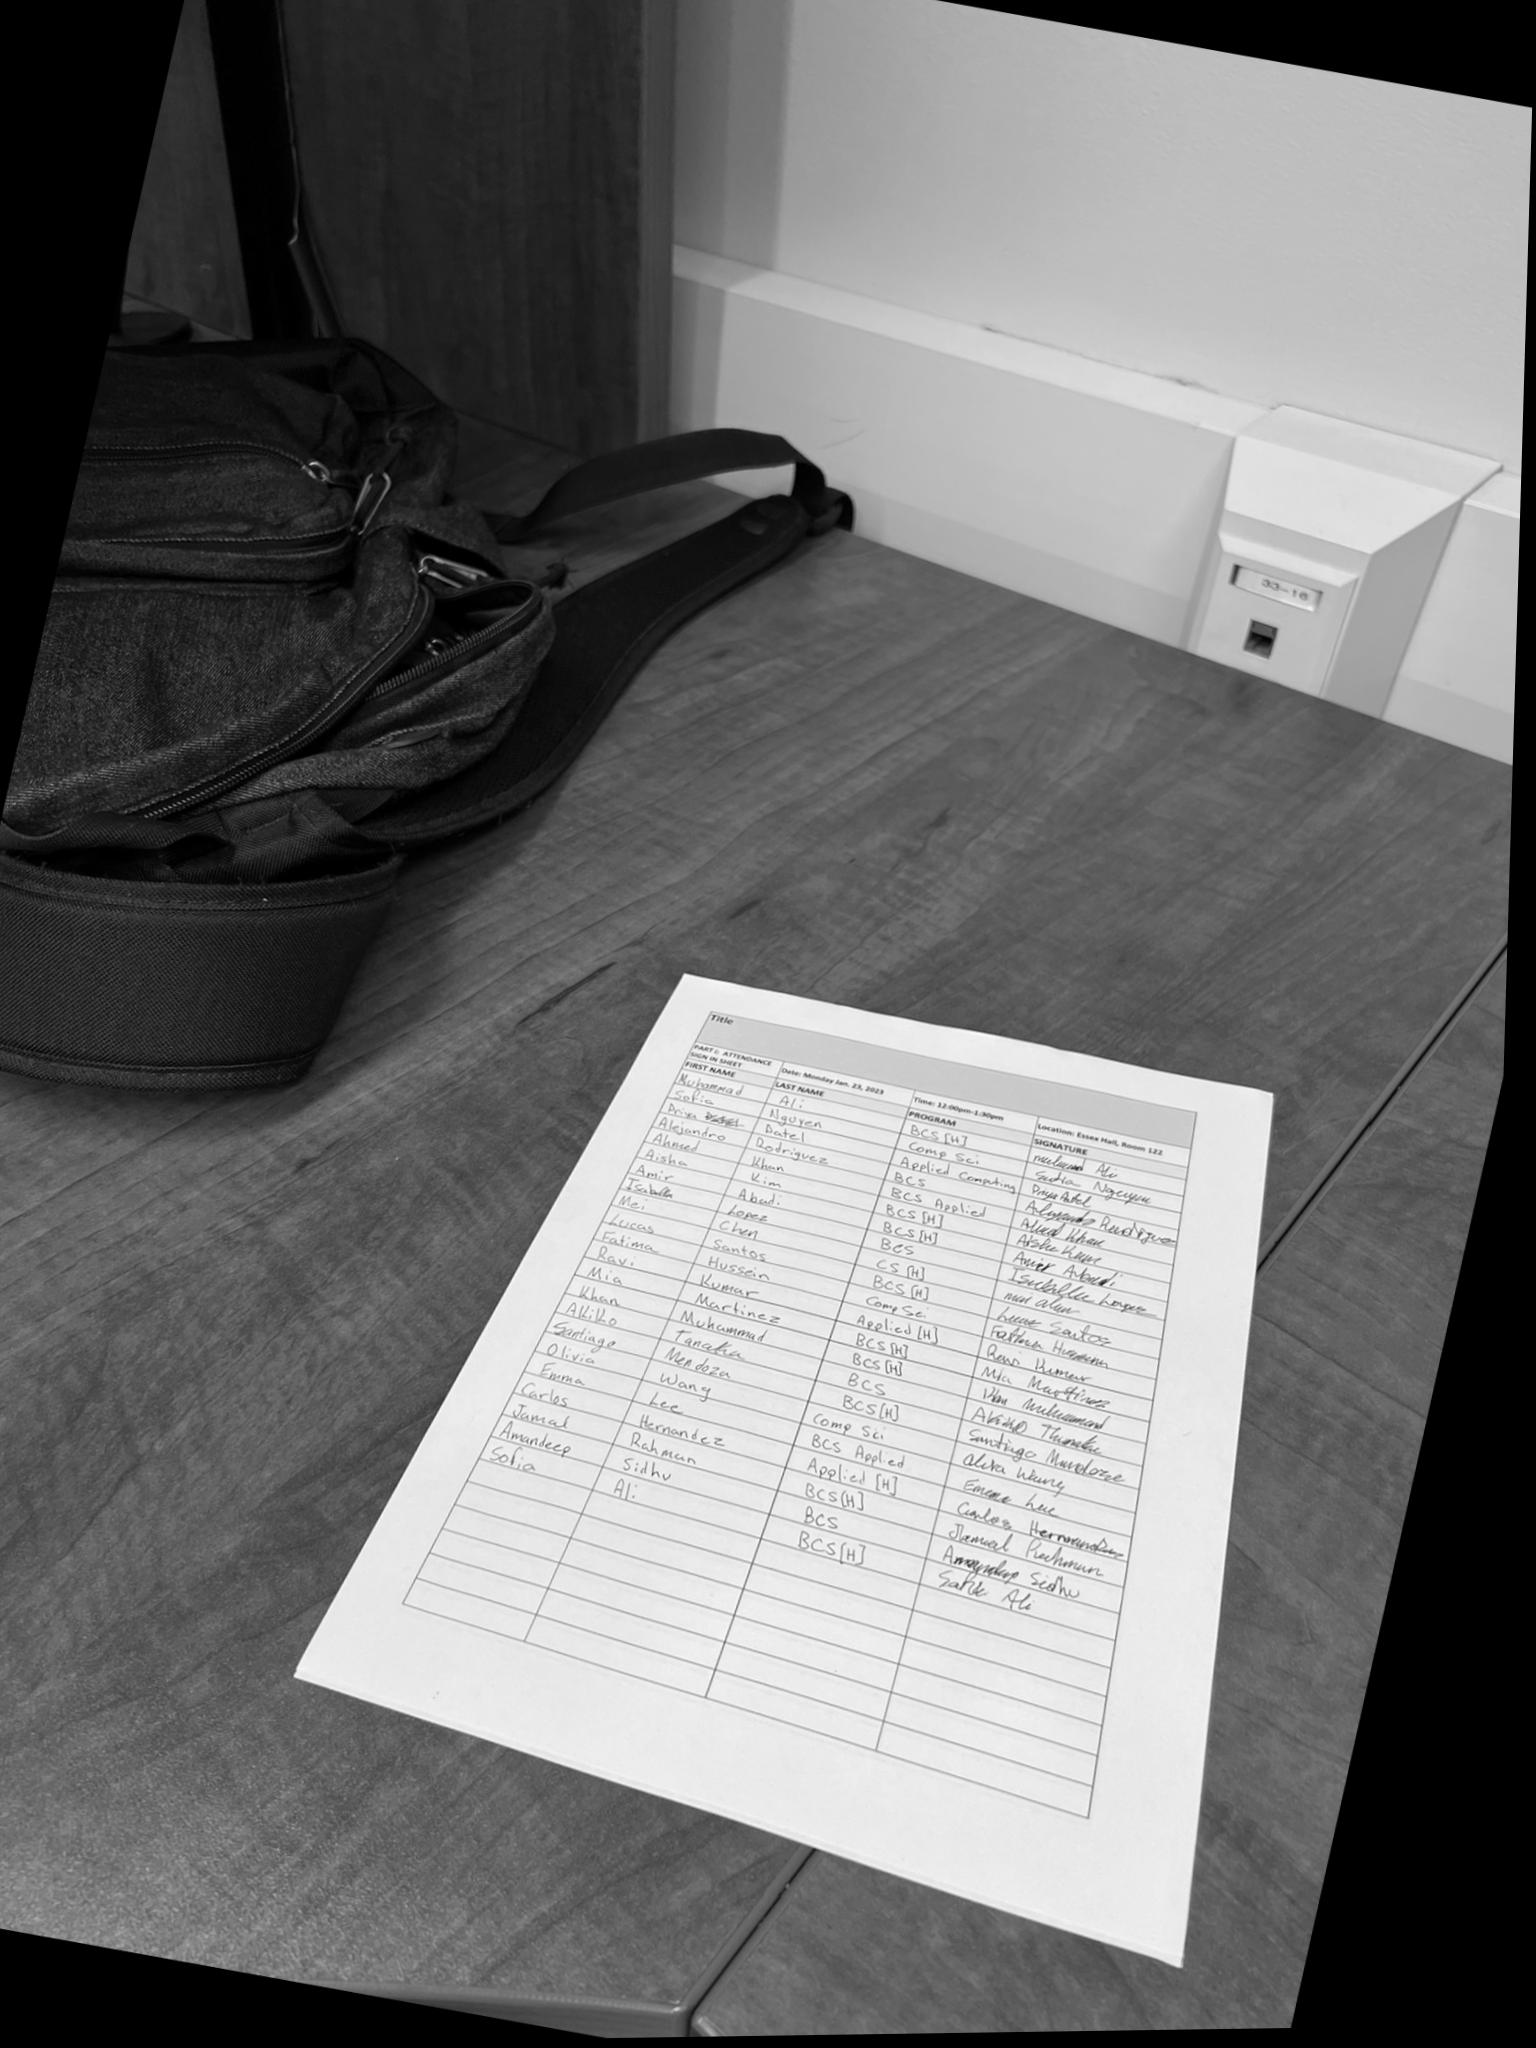 33-16
Title
PART I: ATTENDANCE SIGN IN SHEET Date: Monday Jan. 23, 2023 Time: 12:00pm-1:30pm Location: Essex Hall, Room 122
FIRST NAME LAST NAME PROGRAM SIGNATURE
Muhammad Ali BCS [H] Ali
Sofia Nguyen Comp Sci Sofia Nguyen
Priya Patel Applied Computing Priya Patel
Alejandro Rodriguez BCS Alejandro Rodriguez
Ahmed Khan BCS Applied Ahmed Khan
Aisha Kim BCS [H] Aisha Kim
Amir Abadi BCS [H] Amir Abadi
Isabella Lopez BCS Isabella Lopez
Mei Chen CS [H] mei chen
Lucas Santos BCS [H] Lucas Santos
Fatima Hussein Comp Sci Fatima Hussein
Ravi Kumar Applied [H] Ravi Kumar
Mia Martinez BCS [H] Mia Martinez
Khan Muhammad BCS [H] Khan Muhammad
Akiko Tanaka BCS Akiko Tanaka
Santiago Mendoza BCS [H] Santiago Mendoza
Olivia Wang Comp Sci Olivia Wang
Emma Lee BCS Applied Emma Lee
Carlos Hernandez Applied [H] Carlos Hernandez
Jamal Rahman BCS [H] Jamal Rahman
Amandeep Sidhu BCS Amandeep Sidhu
Sofia Ali BCS [H] Sofia Ali